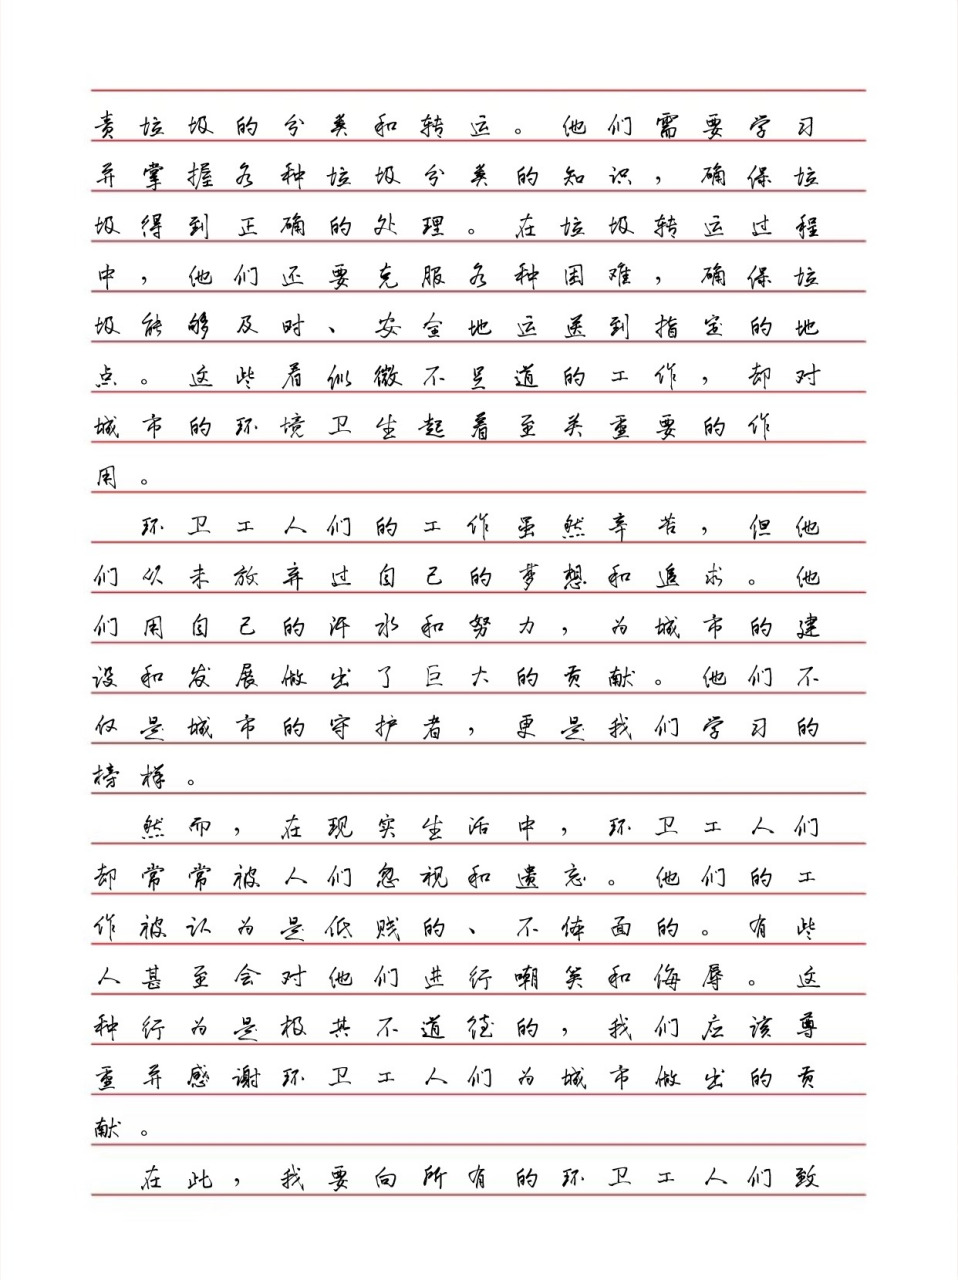 责垃圾的分类和转运。他们需要学习
并掌握各种垃圾分类的知识，确保垃
圾得到正确的处理。在垃圾转运过程
中，他们还要克服各种困难，确保垃
圾能够及时、安全地运送到指定的地
点。这些看似微不足道的工作，却对
城市的环境卫生起着至关重要的作
用。
环卫工人们的工作虽然辛苦，但他
们从未放弃过自己的梦想和追求。他
们用自己的汗水和努力，为城市的建
设和发展做出了巨大的贡献。他们不
仅是城市的守护者，更是我们学习的
榜样。
然而，在现实生活中，环卫工人们
却常常被人们忽视和遗忘。他们的工
作被认为是低贱的、不体面的。有些
人甚至会对他们进行嘲笑和侮辱。这
种行为是极其不道德的，我们应该尊
重并感谢环卫工人们为城市做出的贡
献。
在此，我要向所有的环卫工人们致